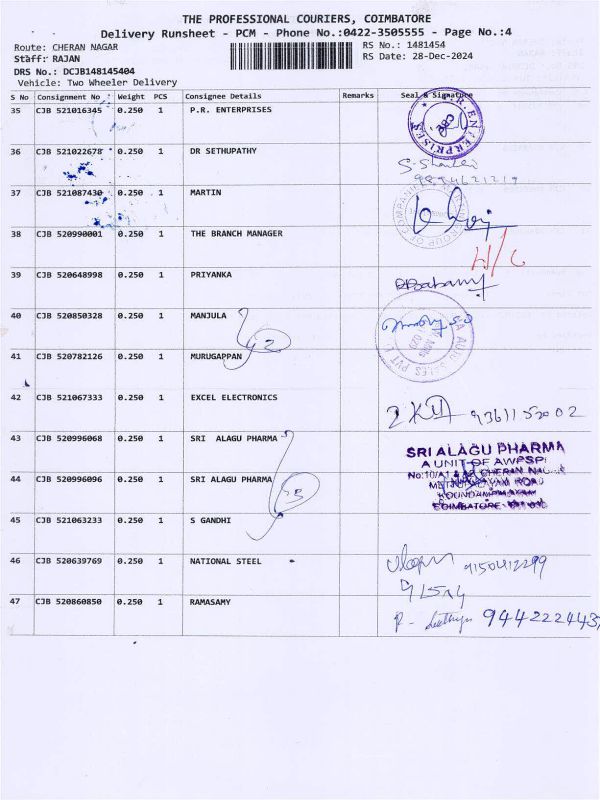 THE PROFESSIONAL COURIERS, COIMBATORE
Delivery Runsheet - PCM - Phone No.:0422-3505555 - Page No.:4
Route: CHERAN NAGAR RS No.: 1481454
Staff: RAJAN RS Date: 28-Dec-2024
DRS No.: DCJB148145404
Vehicle: Two Wheeler Delivery
S No Consignment No Weight PCS Consignee Details Remarks Seal & Signature
35 CJB 521016345 0.250 1 P.R. ENTERPRISES
36 CJB 521022678 0.250 1 DR SETHUPATHY
37 CJB 521087430 0.250 1 MARTIN
38 CJB 520990001 0.250 1 THE BRANCH MANAGER
39 CJB 520648998 0.250 1 PRIYANKA
40 CJB 520850328 0.250 1 MANJULA
42
41 CJB 520782126 0.250 1 MURUGAPPAN
42 CJB 521067333 0.250 1 EXCEL ELECTRONICS
43 CJB 520996068 0.250 1 SRI ALAGU PHARMA
SRI ALAGU PHARMA
A UNIT OF AWPSPI
44 CJB 520996096 0.250 1 SRI ALAGU PHARMA
COIMBATORE
45 CJB 521063233 0.250 1 S GANDHI
46 CJB 520639769 0.250 1 NATIONAL STEEL 9150412299
47 CJB 520860850 0.250 1 RAMASAMY